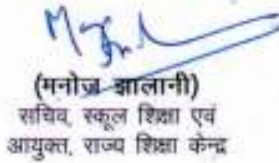 (मनोज झालानी)
सचिव, स्कूल शिक्षा एवं
आयुक्त, राज्य शिक्षा केन्द्र